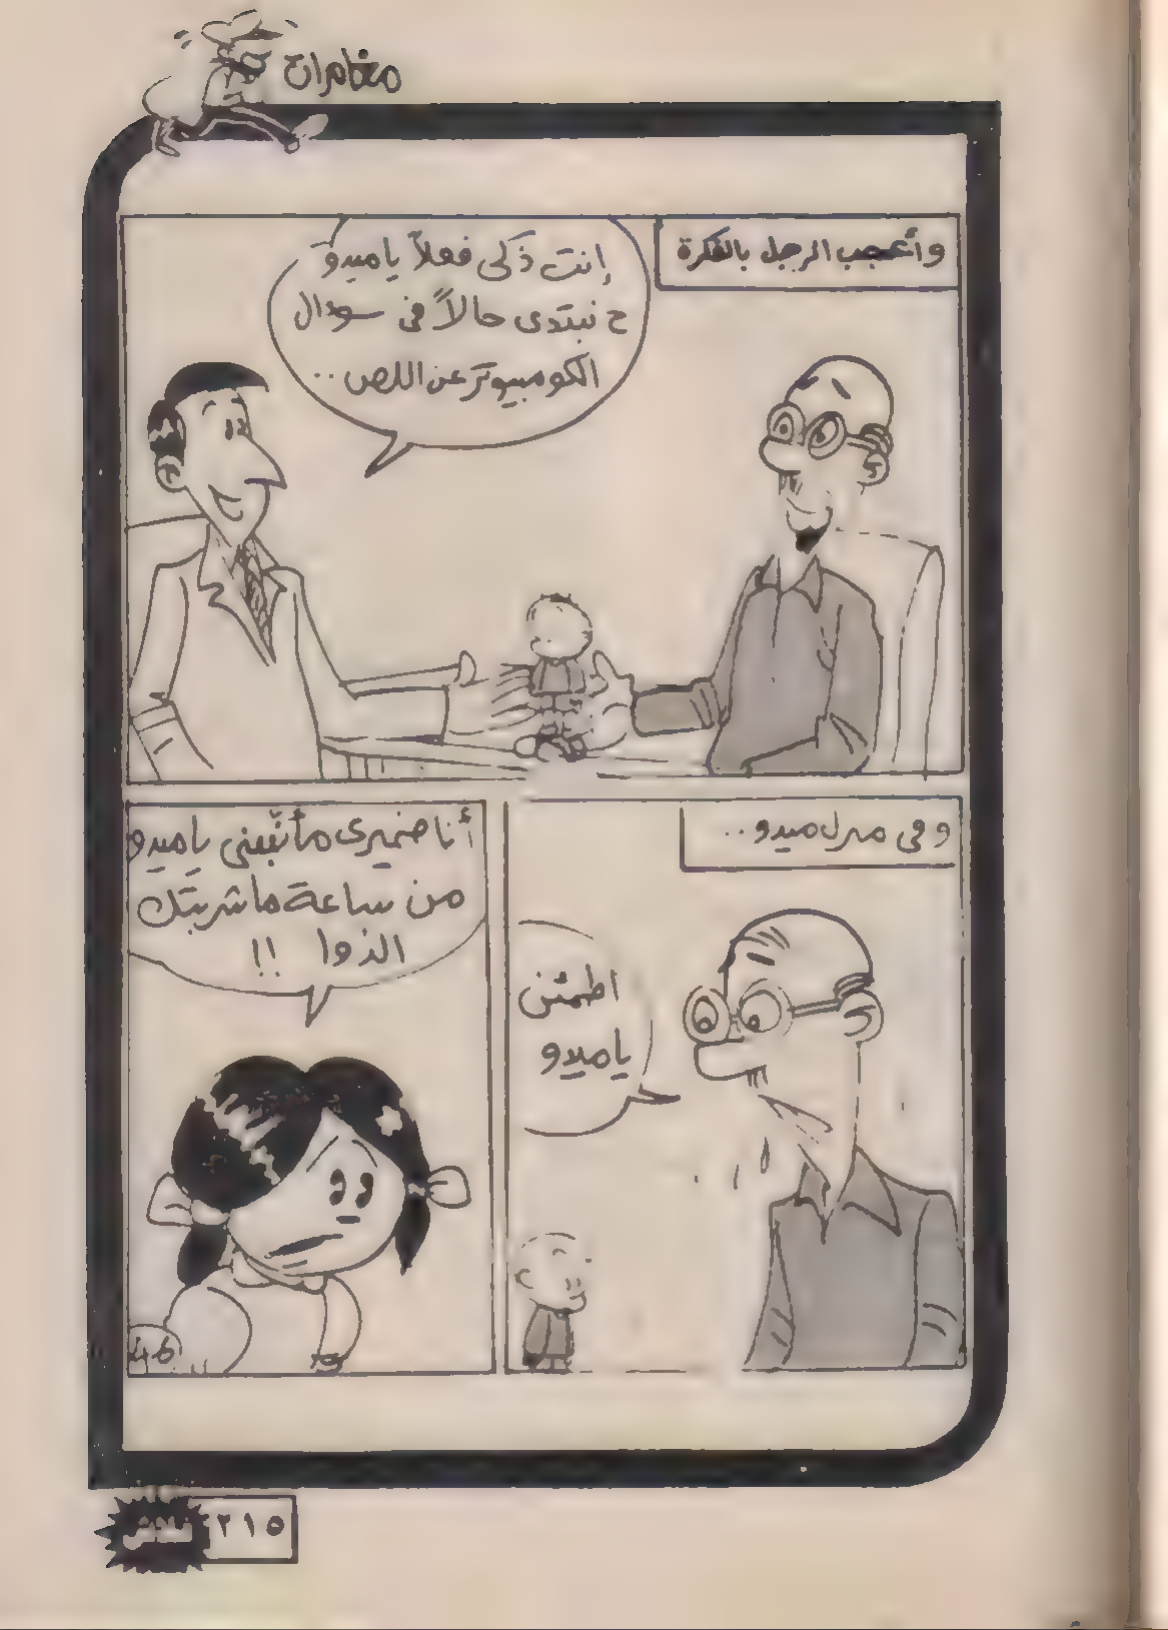 مغامرات
وأعجب الرجل بالفكرة
إنت ذكى فعلاً ياميدو
ح نبتدى حالاً فى سؤال
الكومبيوتر عن اللص..
وفى منزل ميدو..
اطمئن
ياميدو
أنا ضميرى مأنّبنى ياميدو
من ساعة ما شربتك
الدوا !!
46
٢١٥
فلاش